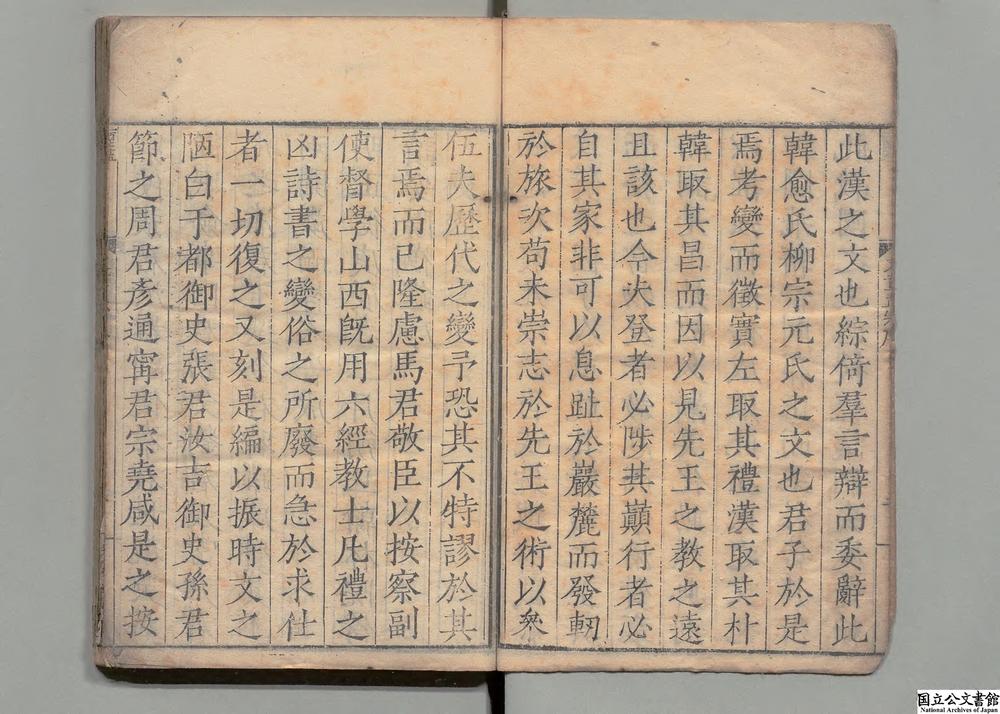 此漢之文也綜倚羣言辯而委辭此
韓愈氏柳宗元氏之文也君子於是
焉考變而徵實左取其禮漢取其朴
韓取其昌而因以見先王之教之遠
且該也今夫登者必陟其巔行者必
自其家非可以息趾於巖麓而發軔
於旅次苟未崇志於先王之術以叅
伍夫歷代之變予恐其不特謬於其
言焉而已隆慮馬君敬臣以按察副
使督學山西旣用六經教士凡禮之
凶詩書之變俗之所廢而急於求仕
者一切復之又刻是編以振時文之
陋白于都御史張君汝吉御史孫君
節之周君彥通甯君宗堯咸是之按
国立公文書館
National Archives of Japan